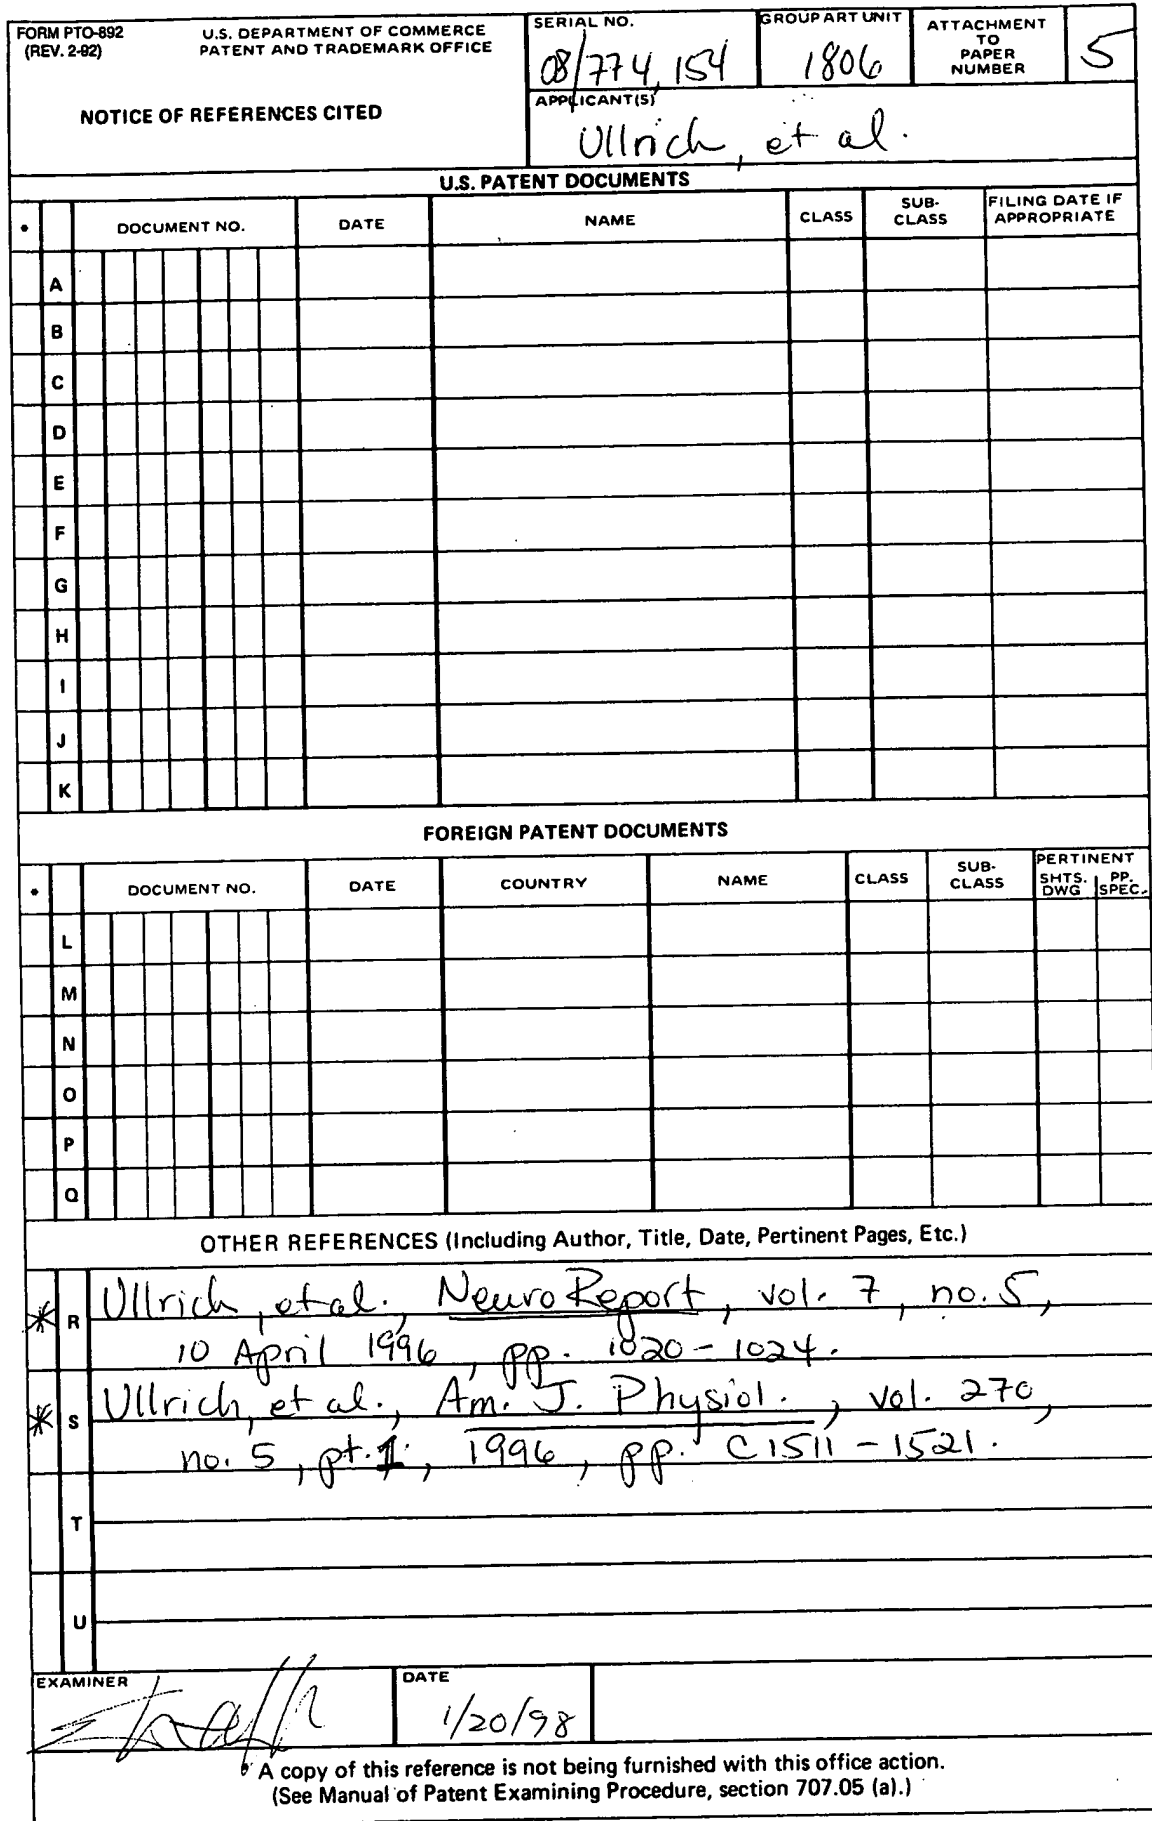 FORM PTO-892 U.S. DEPARTMENT OF COMMERCE
(REV. 2-92) PATENT AND TRADEMARK OFFICE
NOTICE OF REFERENCES CITED
SERIAL NO.
08/774,154
GROUP ART UNIT
1806
ATTACHMENT
TO
PAPER
NUMBER
5
APPLICANT(S)
Ullrich, et al.
U.S. PATENT DOCUMENTS
* DOCUMENT NO. DATE NAME CLASS SUB-
CLASS FILING DATE IF
APPROPRIATE
A
B
C
D
E
F
G
H
I
J
K
FOREIGN PATENT DOCUMENTS
* DOCUMENT NO. DATE COUNTRY NAME CLASS SUB-
CLASS PERTINENT
SHTS. PP.
DWG SPEC.
L
M
N
O
P
Q
OTHER REFERENCES (Including Author, Title, Date, Pertinent Pages, Etc.)
* R Ullrich, et al., NeuroReport, vol. 7, no. 5,
10 April 1996, pp. 1020-1024.
* S Ullrich, et al., Am. J. Physiol., vol. 270,
no. 5, pt. 1, 1996, pp. C1511-1521.
T
U
EXAMINER
DATE
1/20/98
* A copy of this reference is not being furnished with this office action.
(See Manual of Patent Examining Procedure, section 707.05 (a).)